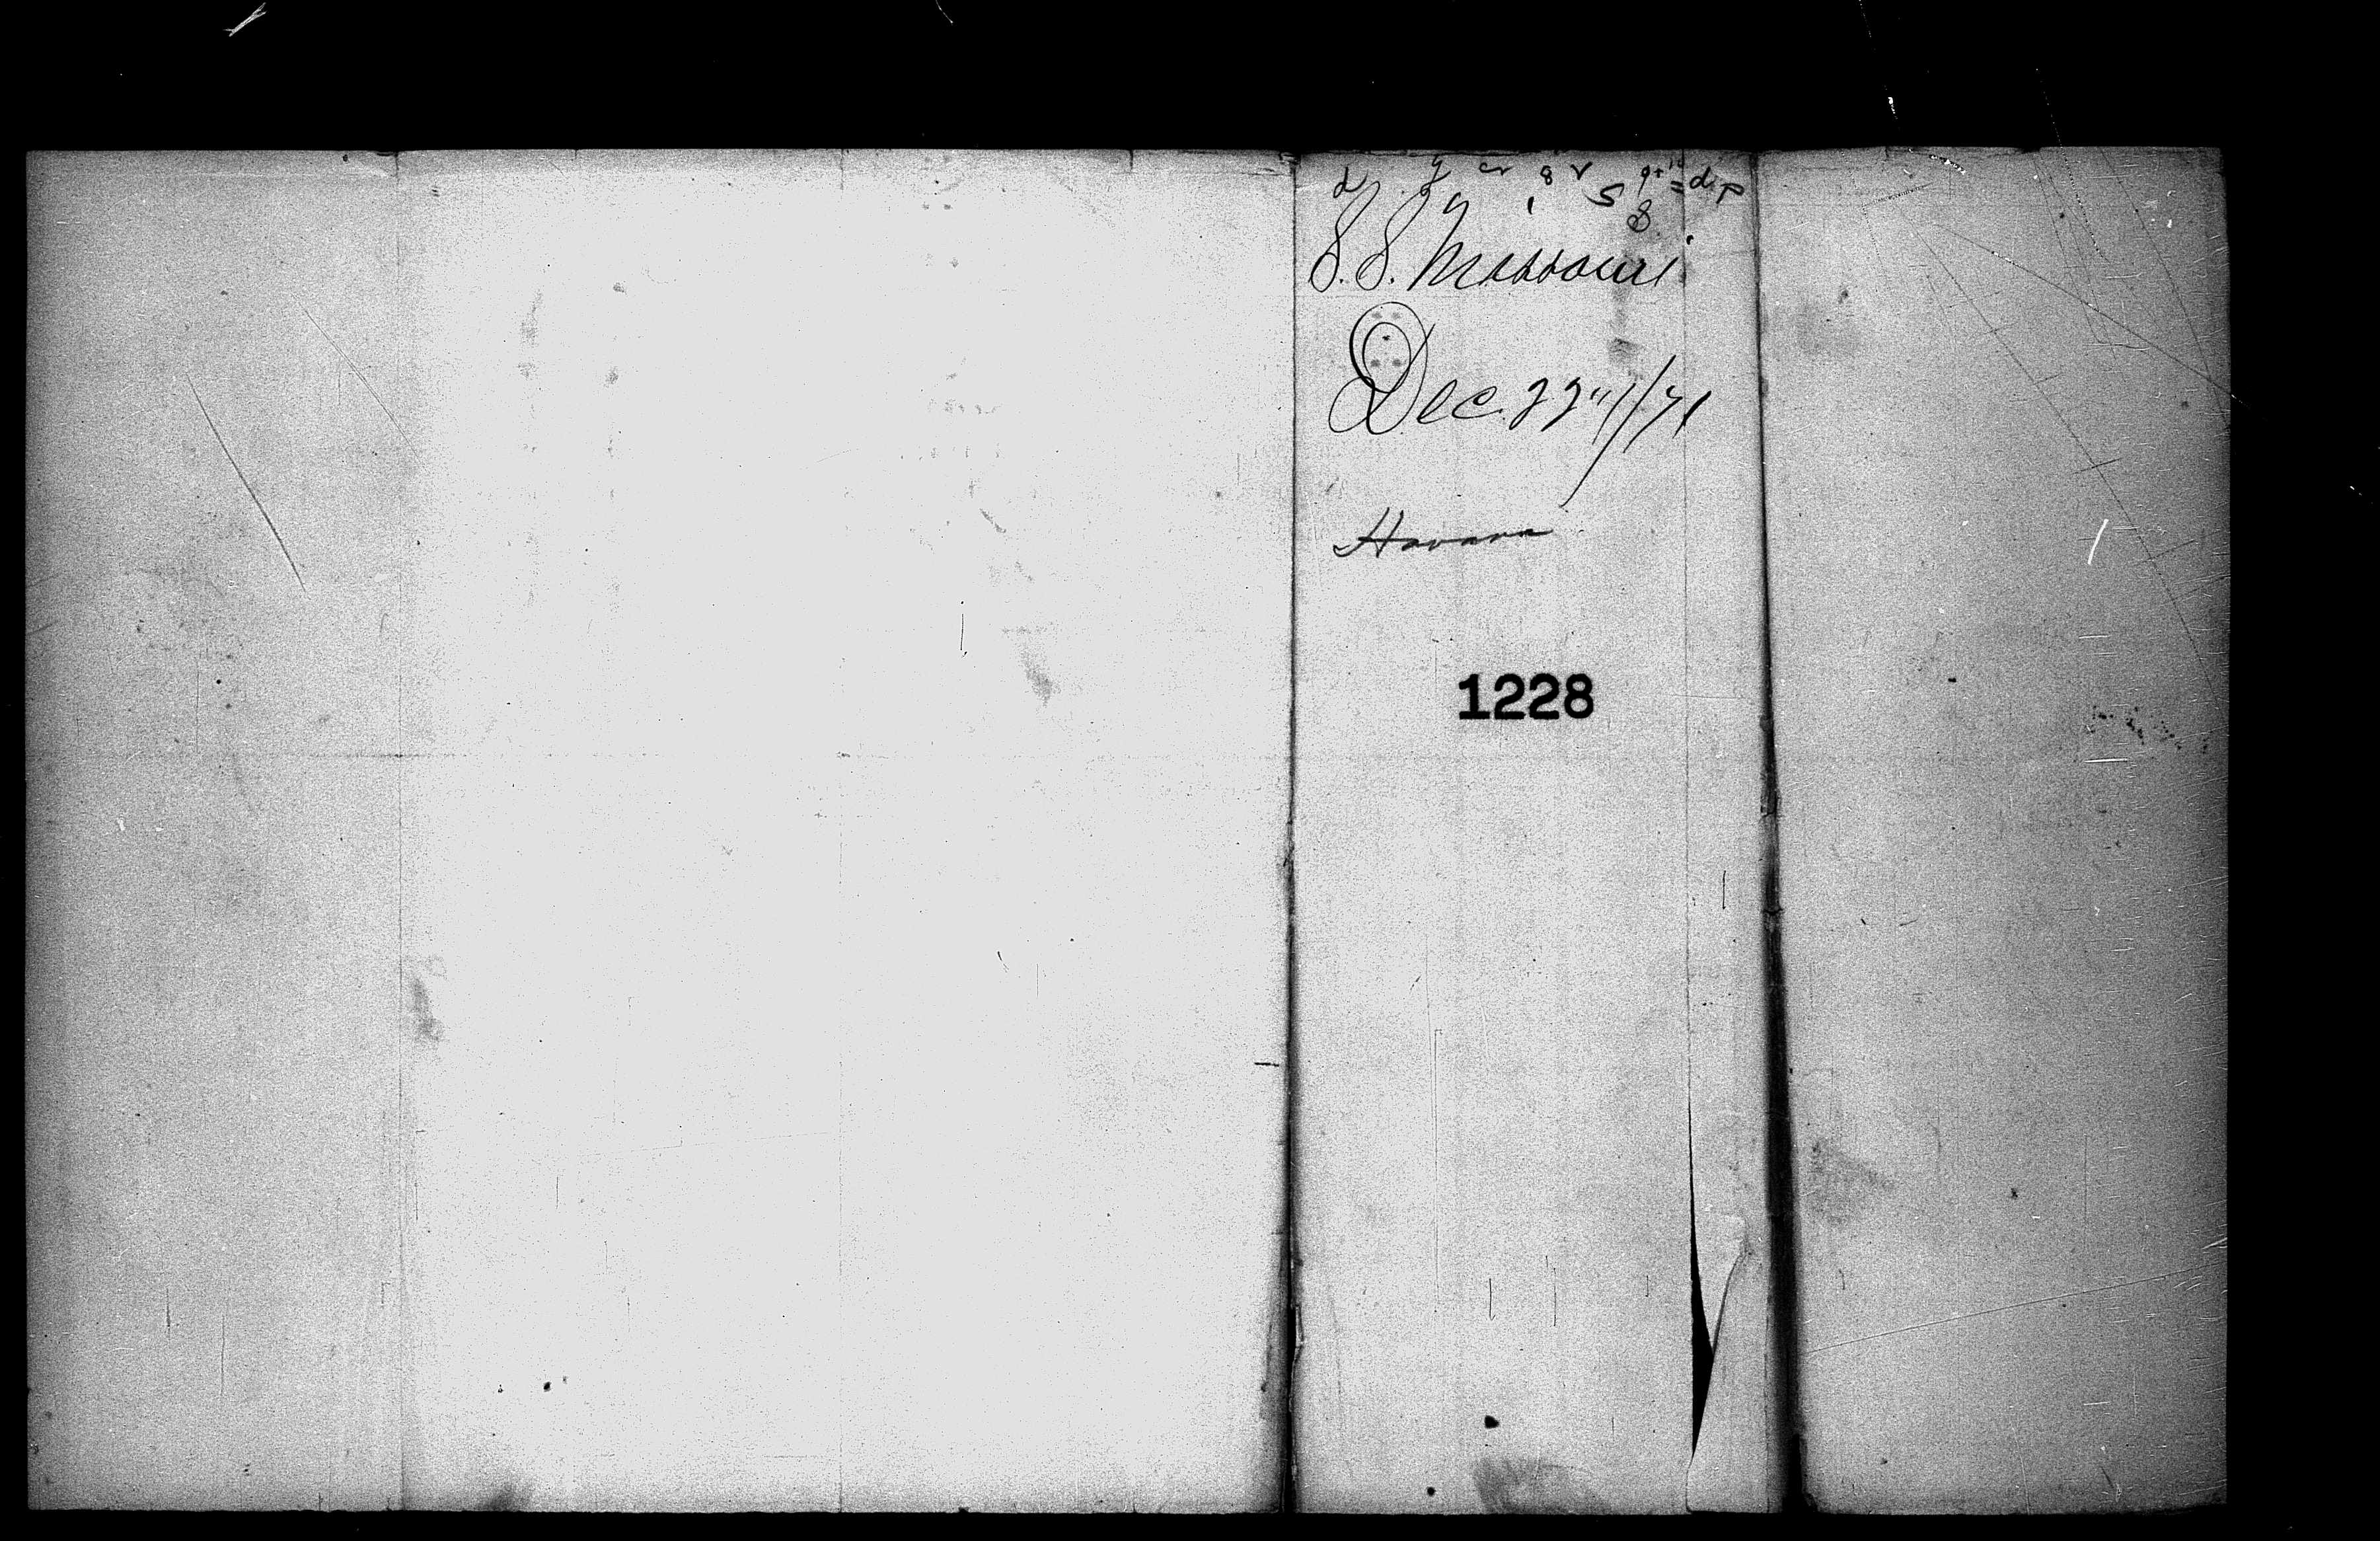 S.S. Missouri
Dec. 22"/71
Havana
1228